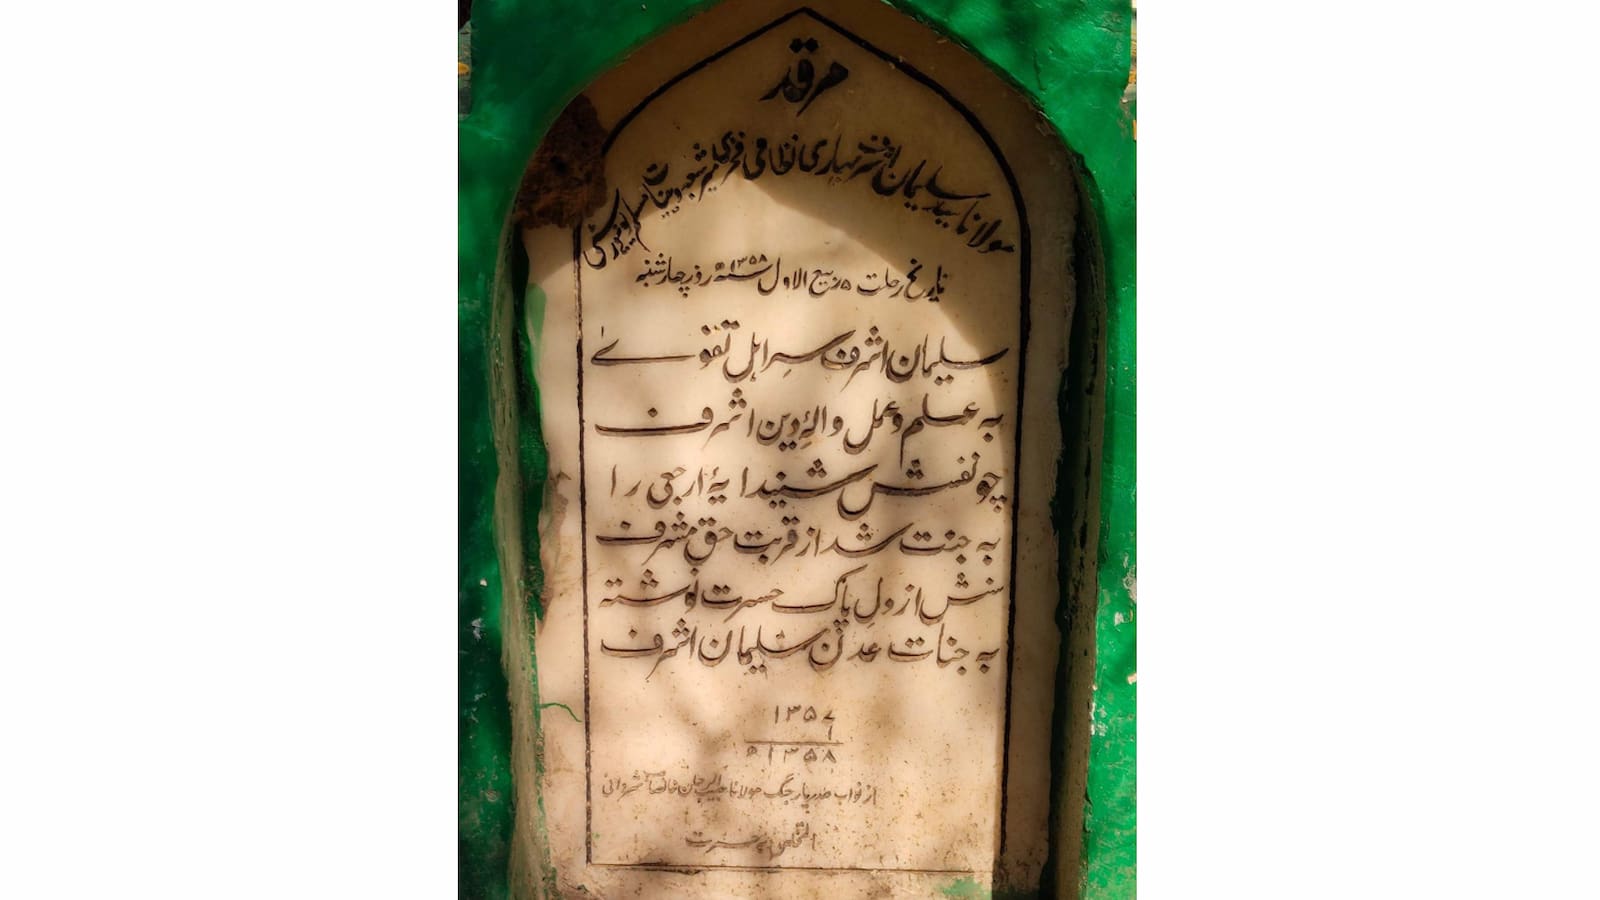 مرقد
مولانا سید سلیمان اشرف بہاری نظامی فخری میر شعبہ دینیات مسلم یونیورسٹی
تاریخ رحلت ۵ ربیع الاول ۱۳۵۸ھ روز چہار شنبہ
سلیمان اشرف سرِ اہل تقویٰ
بہ علم و عمل والۂ دین اشرف
چو نفسش شنید ایۂ ارجعی را
بہ جنت شد از قربت حق مشرف
سنش از دلِ پاک حسرت نوشتہ
بہ جنات عدن سلیمان اشرف
۱۳۵۷
۱
۱۳۵۸ھ
از نواب صدر یار جنگ مولانا حبیب الرحمان خانصاحب شروانی
المتخلص بہ حسرت